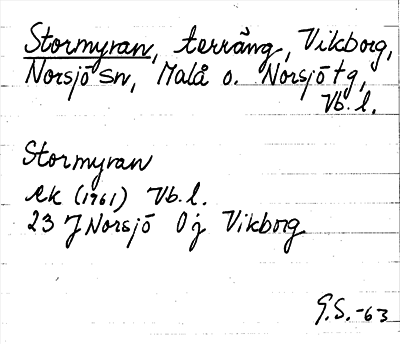 Stormyran, terräng, Vikborg,
Norsjö sn, Malå o. Norsjö tg,
Vb. l.
Stormyran
ek (1961) Vb. l.
23 J Norsjö 0 j Vikborg
G.S. -63